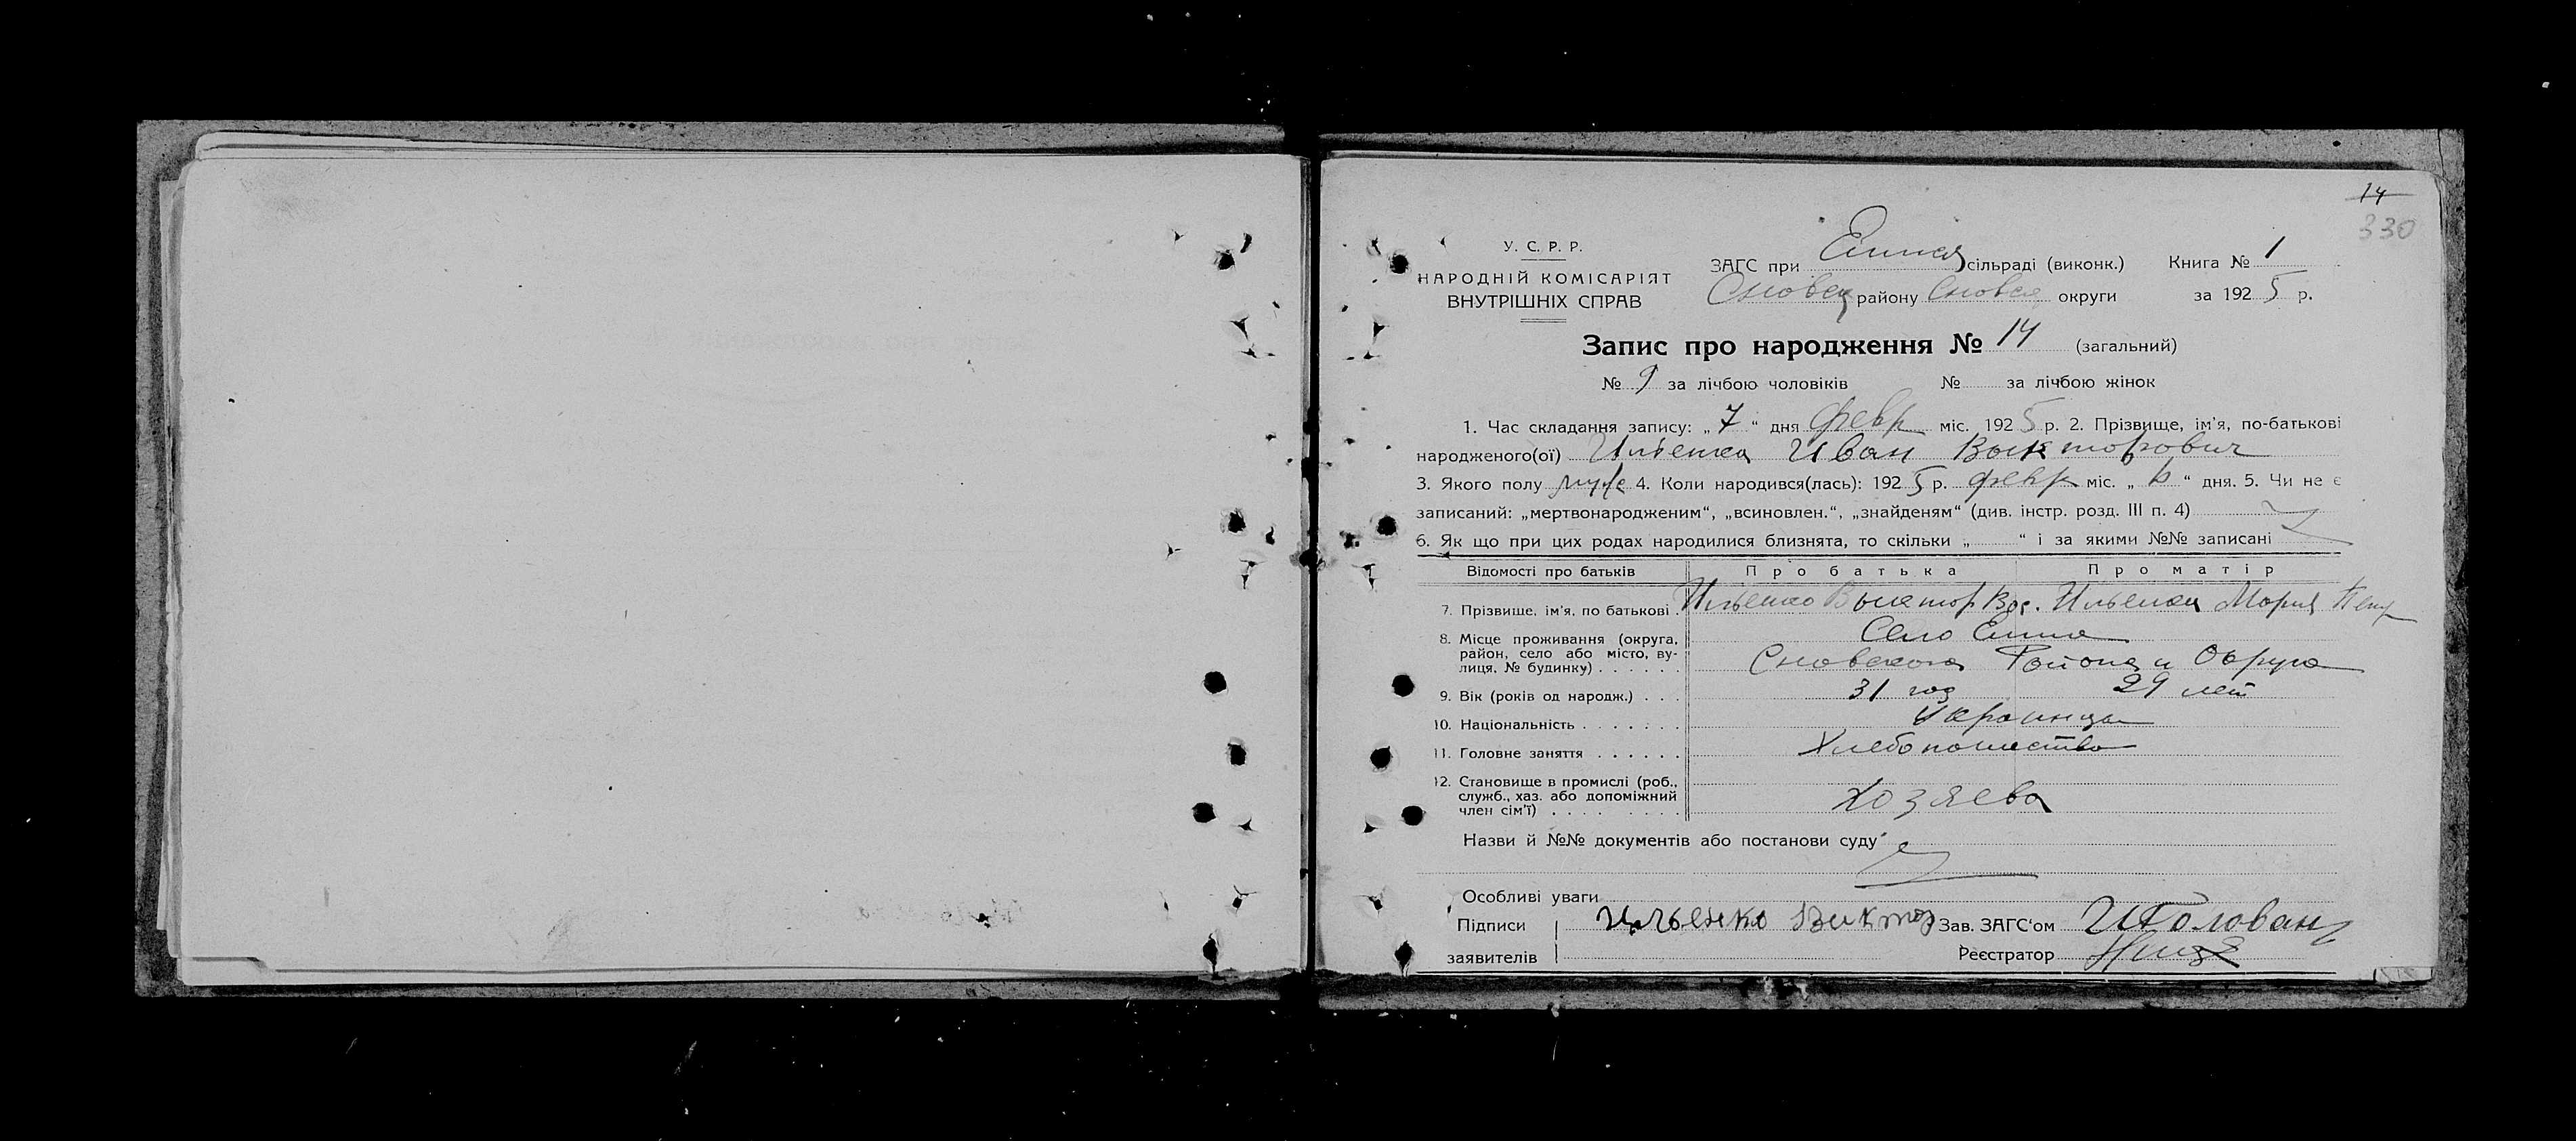 14
330
У. С. Р. Р.
НАРОДНІЙ КОМІСАРІЯТ
ВНУТРІШНІХ СПРАВ
ЗАГС при сільраді (виконк.) Книга № 1
Сновск району Сновск округи за 1925 р.
Запис про народження № 14 (загальний)
№ 9 за лічбою чоловіків № за лічбою жінок
1. Час складання запису: „7“ дня февр міс. 1925 р. 2. Прізвище, ім'я, по-батькові
народженого(ої) Ильенко Иван Выкторович
3. Якого полу муж 4. Коли народився(лась): 1925 р. февр міс. „ “ дня. 5. Чи не є
записаний: „мертвонародженим“, „всиновлен.“, „знайденям“ (див. інстр. розд. III п. 4)
6. Як що при цих родах народилися близнята, то скільки „ “ і за якими №№ записані
Відомості про батьків Про батька Про матір
7. Прізвище, ім'я, по батькові Ильенко Выктор Вас. Ильенко Мария Петр
8. Місце проживання (округа, район, село або місто, вулиця, № будинку) Село
Сновского Района и Округа
9. Вік (років од народж.) 31 год 29 лет
10. Національність Украинцы
11. Головне заняття Хлебопашество
12. Становище в промислі (роб., служб., хаз. або допоміжний член сім'ї) Хозяева
Назви й №№ документів або постанови суду
Особливі уваги
Підписи Ильенко Виктор Зав. ЗАГС'ом Головань
заявителів Реєстратор